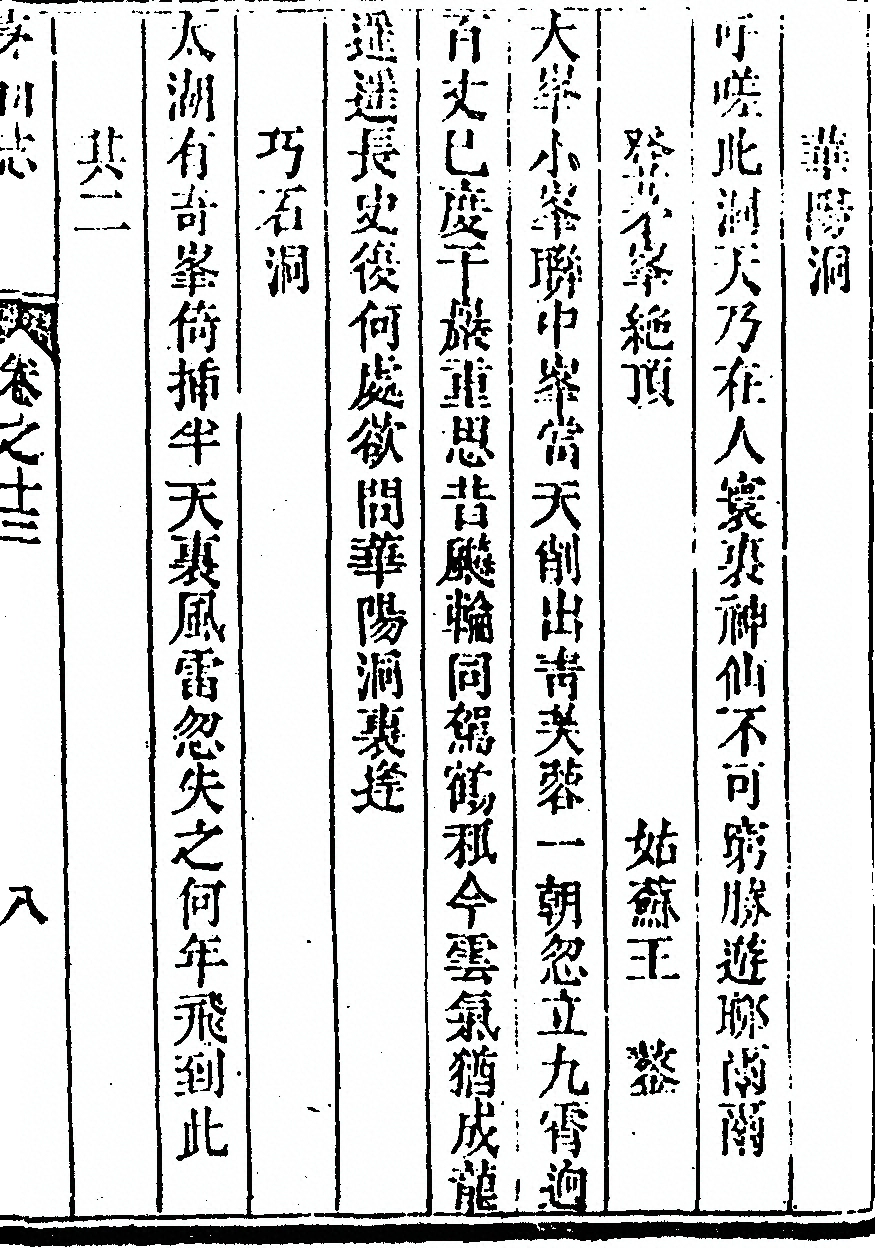 華陽洞
吁嗟此洞天乃在人寰裏神仙不可窮勝遊聊爾爾
登茅峯絶頂　姑蘇王　鏊
大峯小峯聯中峯當天削出青芙蓉一朝忽立九霄逈
百丈已度千巖重思昔飈輪同駕鶴秪今雲氣猶成龍
遥遥長史後何處欲問華陽洞裏逢
巧石洞
太湖有奇峯倚揷半天裏風雷忽失之何年飛到此
其二
茅山志　卷之十三　八